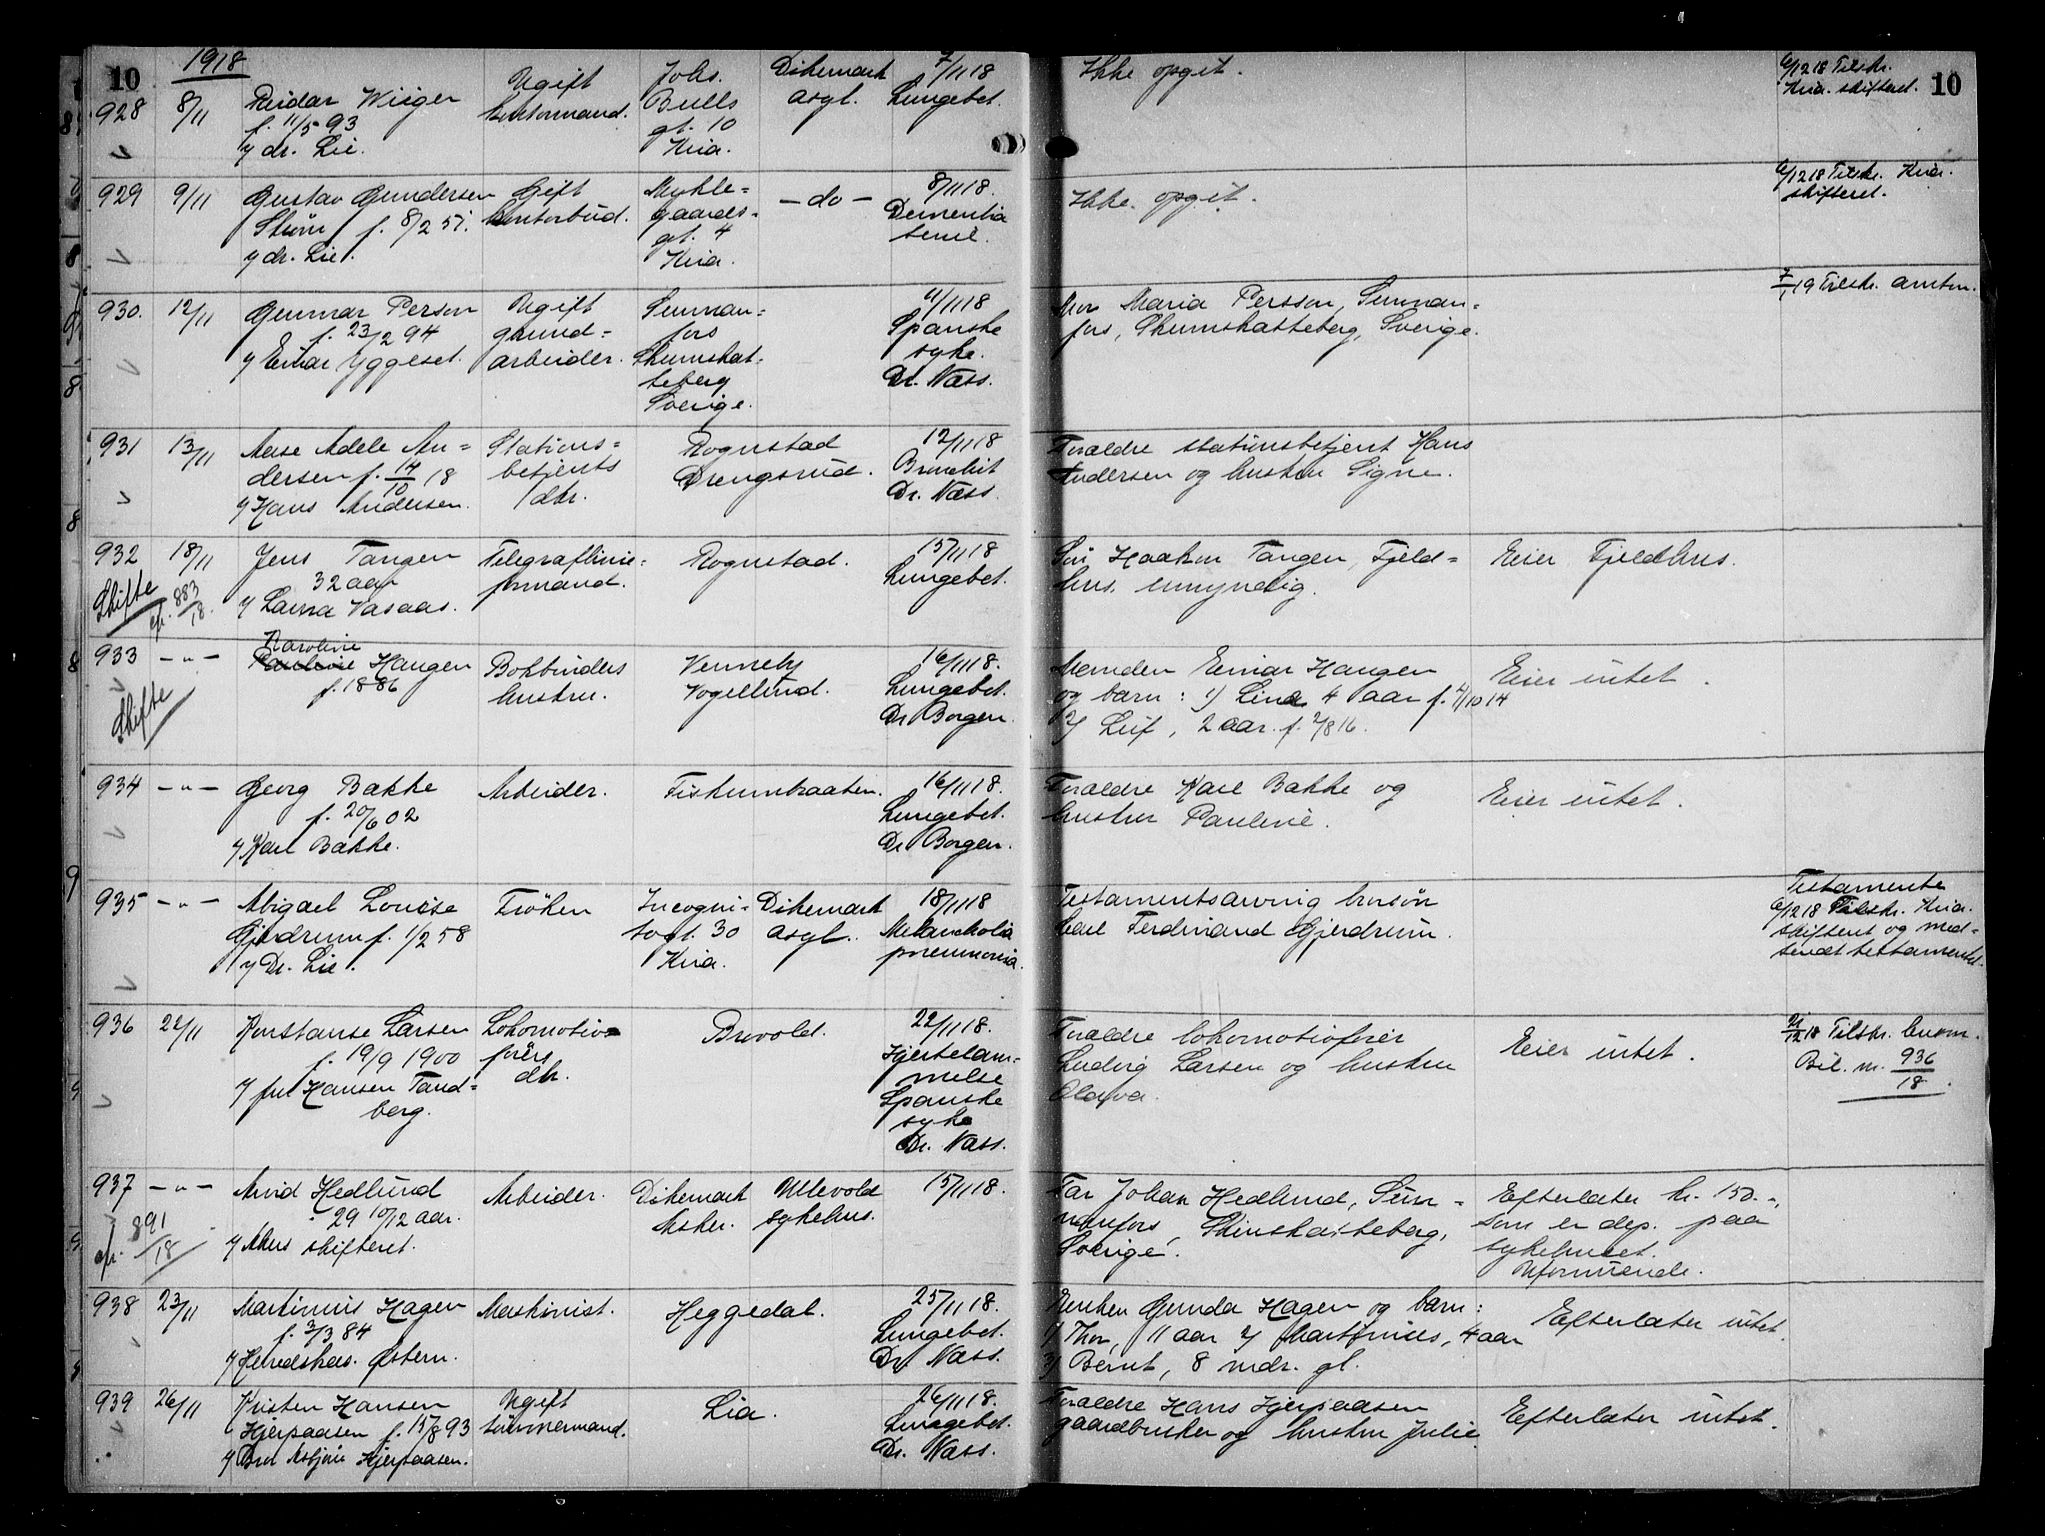 10
1918
928
8/11
Reidar Wiiger
f. 11/5 93
v/ dr. Lie.
Ugift
kontormand.
Johs.
Bulls
gt. 10
Kria.
Dikemark
asyl.
7/11 18
Lungebet.
Ikke opgit.
6/12 18 Tilskr.
Kria. skifteret.
10
929
9/11
Gustav Gundersen
f. 8/2 57.
v/ dr. Lie.
Gift
kontorbud.
Mykle=
gaards=
gt. 4
Kria.
- do -
8/11 18.
Dementia
senil.
Ikke opgit.
6/12 18 Tilskr. Kria.
skifteret.
930.
12/11
Gunnar Person
f. 23/2 94
v/ Einar Yggeset.
Ugift
grund=
arbeider.
Sunnan=
fors
Skinnskat=
teberg
Sverige.
11/11 18
Spanske
syke.
Dr. Næss.
Mor Maria Persson, Sunnan=
fors, Skinnskatteberg, Sverige.
7/1 19 Tilskr. amtm.
931
13/11
Aase Adele An=
dersen f. 14/10 18
v/ Hans Andersen.
Stations=
betjents
dtr.
Rognstad
Drengsrud.
12/11 18
Bronchit
Dr. Næss.
Foraldre stationsbetjent Hans
Andersen og hustru Signe.
932
18/11
Skifte
cfr. 883/18.
Jens Tangen
32 aar
v/ Laura Vasaas.
Telegraflinie=
formand.
Rognstad.
15/11 18
Lungebet.
Søn Haakon Tangen, Fjeld=
hus, umyndig.
Eier Fjeldhus.
933
- " -
Skifte
Karoline
Pauline Haugen
f. 1886
Bokbinders
hustru.
Venneby
Vogellund.
16/11 18.
Lungebet.
Dr Borgen.
Manden Einar Haugen
og barn: 1) Lina 4 aar f. 4/10 14
2) Leif, 2 aar. f. 2/8 16.
Eier intet.
934
- " -
Georg Bakke
f. 20/6 02
v/ Karl Bakke.
Arbeider.
Fiskumbraaten.
16/11 18.
Lungebet.
Dr Borgen.
Foraldre Karl Bakke og
hustru Pauline.
Eier intet.
935
- " -
Abigael Louise
Gjerdrum f. 1/2 58
v/ Dr. Lie.
Frøken
Incogni=
togt. 30
Kria.
Dikemark
asyl.
18/11 18
Melancholia
pneumonia.
Testamentsarving brorsøn
Carl Ferdinand Gjerdrum.
Testamente
6/12 18 Tilskr. Kria.
skifteret og med=
sendt testamentet.
936
22/11
Konstanse Larsen
f. 19/9 1900
v/ frk Hansen Tand=
berg.
Lokomotiv=
førers
dtr.
Brevold.
22/11 18.
Hjertelam=
melse
Spanske
syke
Dr. Næss.
Foraldre lokomotivfører
Ludvig Larsen og hustru
Olava.
Eier intet.
21/12 18 Tilskr.
Bil. nr. 936/18.
937
- " -
cfr. 891/18
Arvid Hedlund
29 10/12 aar.
v/ Akers skifteret.
Arbeider.
Dikemark
Asker.
Ullevold
sykehus.
15/11 18.
Far Johan Hedlund, Sun=
nanfors, Skinskatteberg,
Sverige.
Efterlater kr. 150.-,
som er dep. paa
sykehuset.
Uformuende.
938
23/11
Martinius Hagen
f. 3/3 84
v/ Herredskas. Østern.
Maskinist.
Heggedal.
25/11 18.
Lungebet.
Dr Næss.
Enken Gunda Hagen og barn:
1) Thor, 11 aar 2) Martinius, 4 aar
3) Bernt, 8 mdr. gl.
Efterlater intet.
939
26/11
Kristen Hansen
Hjerpaasen f. 15/8 93
v/ Bror Asbjørn Hjerpaasen.
Ugift
tømmermand.
Lia.
26/11 18.
Lungebet.
Dr. Næss.
Foraldre Hans Hjerpaasen
gaardbruker og hustru Julie.
Efterlater intet.